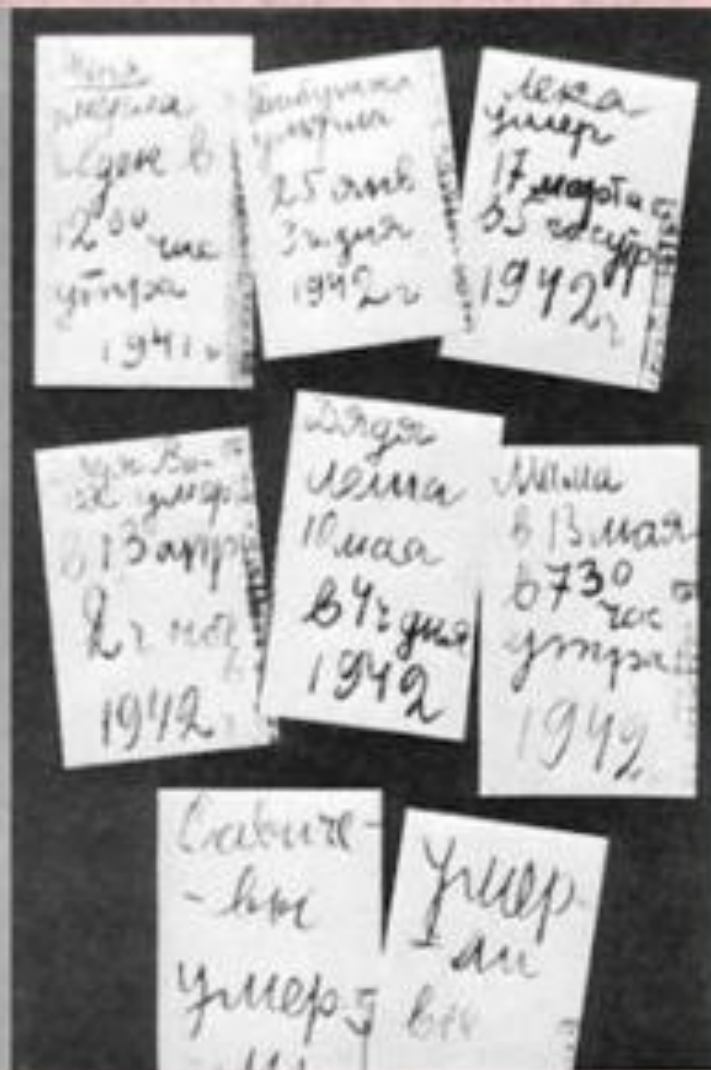 Женя
умерла
28 дек в
12 00 час
утра
1941 г
Бабушка
умерла
25 янв
3 ч дня
1942 г
Лека
умер
17 марта
в 5 час утр
1942 г
Дядя Ва-
ся умер
в 13 апр
2 ч ноч
1942 г
Дядя
Леша
10 мая
в 4 ч дня
1942
Мама
в 13 мая
в 7 30
час
утра
1942
Савиче-
-вы
умер
умер
-ли
все